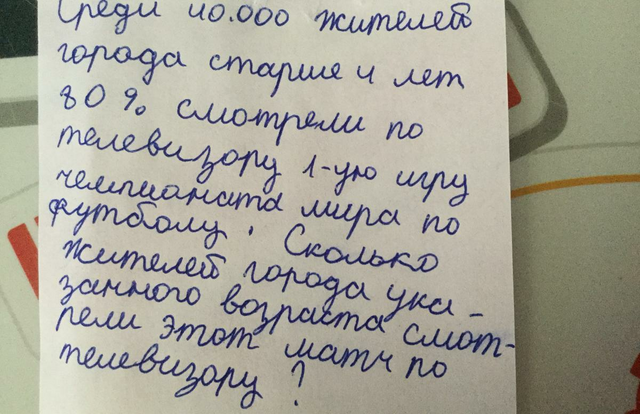 Среди 40.000 жителей
города старше 4 лет
80% смотрели по
телевизору 1-ую игру
чемпионата мира по
футболу. Сколько
жителей города ука-
занного возраста смот-
рели этот матч по
телевизору?